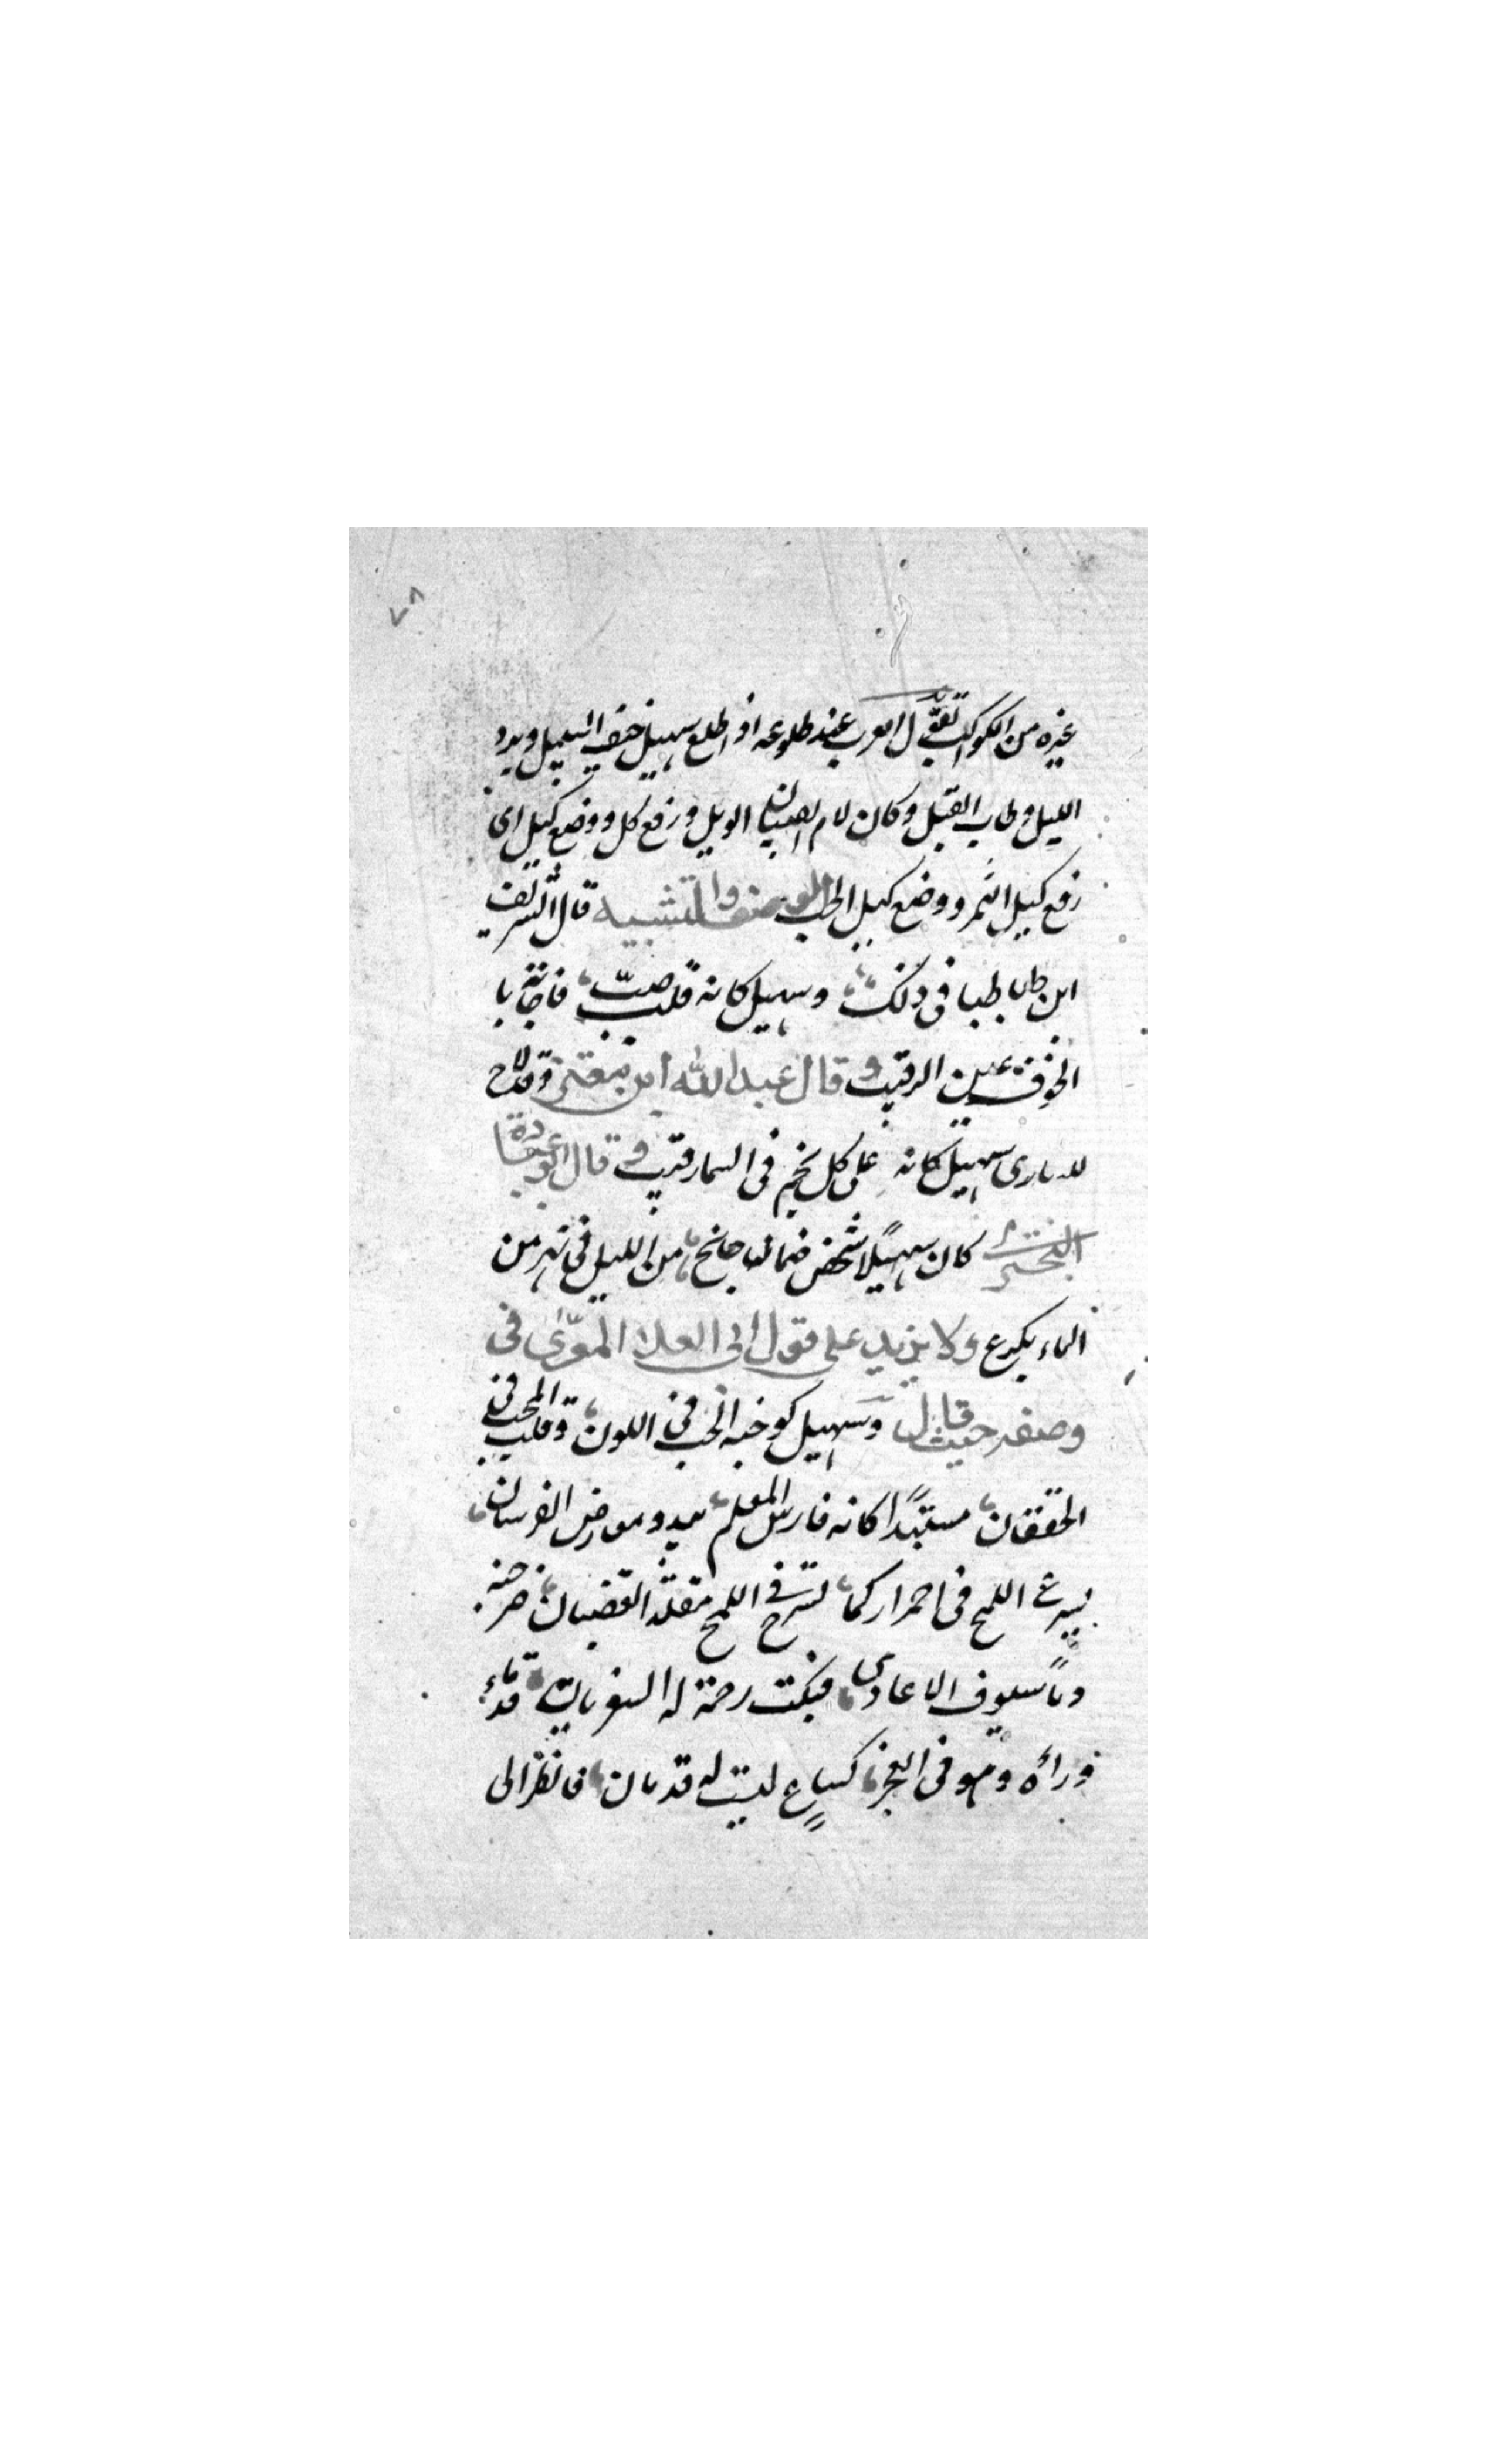 ٧٨
غيره من الكواكب تقول العرب عند طلوعه اذا طلع سهيل خيف السيل وبرد
الليل وطاب القيل وكان لام الصبيان الويل ورفع كل ووضع كيل اى
رفع كيل التمر ووضع كيل الحب الوصف والتشبيه قال الشريف
ابن طباطبا فى ذلك وسهيل كانه قلب صبّ فاجاته با
لخوف عين الرقيب وقال عبدالله ابن معتز وقد لاح
للسارى سهيل كانه على كل نجم فى السما رقيب و قال ابو عبادة
البحترى كان سهيلا شخص ضمان جانح من الليل فى نهر من
الماء يكرع ولا يزيد على قول ابى العلا المعرّى فى
وصفه حيث قال وسهيل كوجنة الحب فى اللون وقلب المحب فى
الخفقان مستبدًا كانه فارس المعلم يبدو معارض الفرسان
يسرع اللمح فى احمرار كما تسرع فى اللمح مقلة الغضبان ضرجته
دمًا سيوف الاعادى فبكت رحمة له الشعريان قدماه
وراءه وهو فى العجز كساعٍ ليست له قدمان فانظر الى